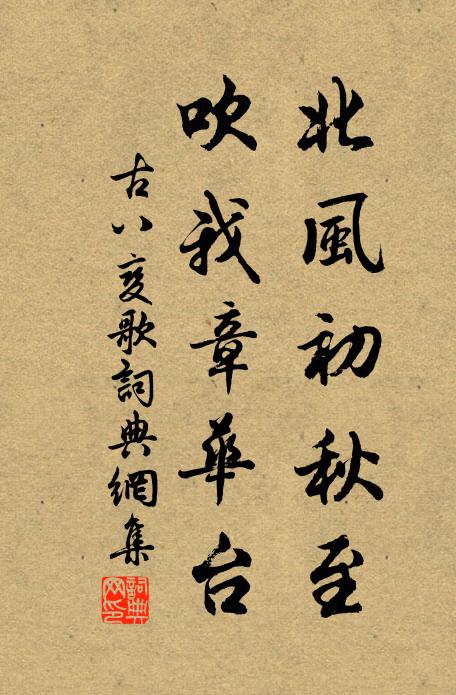 北風初秋至
吹我章華台
古八變歌詞典網集
詞典网印